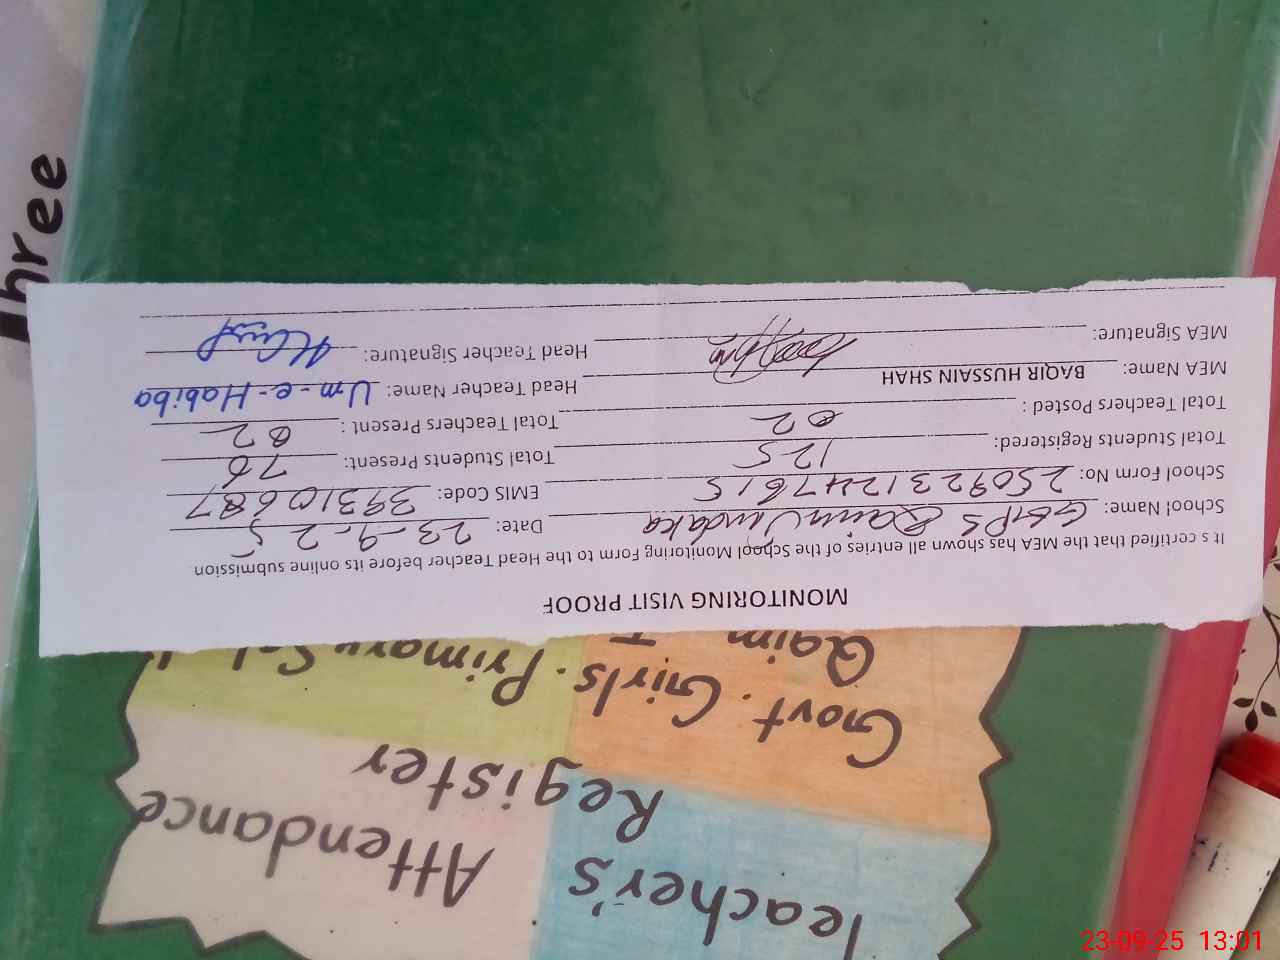 MONITORING VISIT PROOF
It s certified that the MEA has shown all entries of the School Monitoring Form to the Head Teacher before its online submission
School Name: GGPS Qaim Jindaka Date: 23-9-25
School Form No: 2509231247615 EMIS Code: 39310687
Total Students Registered: 125 Total Students Present: 76
Total Teachers Posted : 02 Total Teachers Present : 02
MEA Name: BAQIR HUSSAIN SHAH Head Teacher Name: Um-e-Habiba
MEA Signature: Head Teacher Signature:
Teacher's Attendance
Register
Govt. Girls. Primary
Qaim
Three
23-09-25 13:01